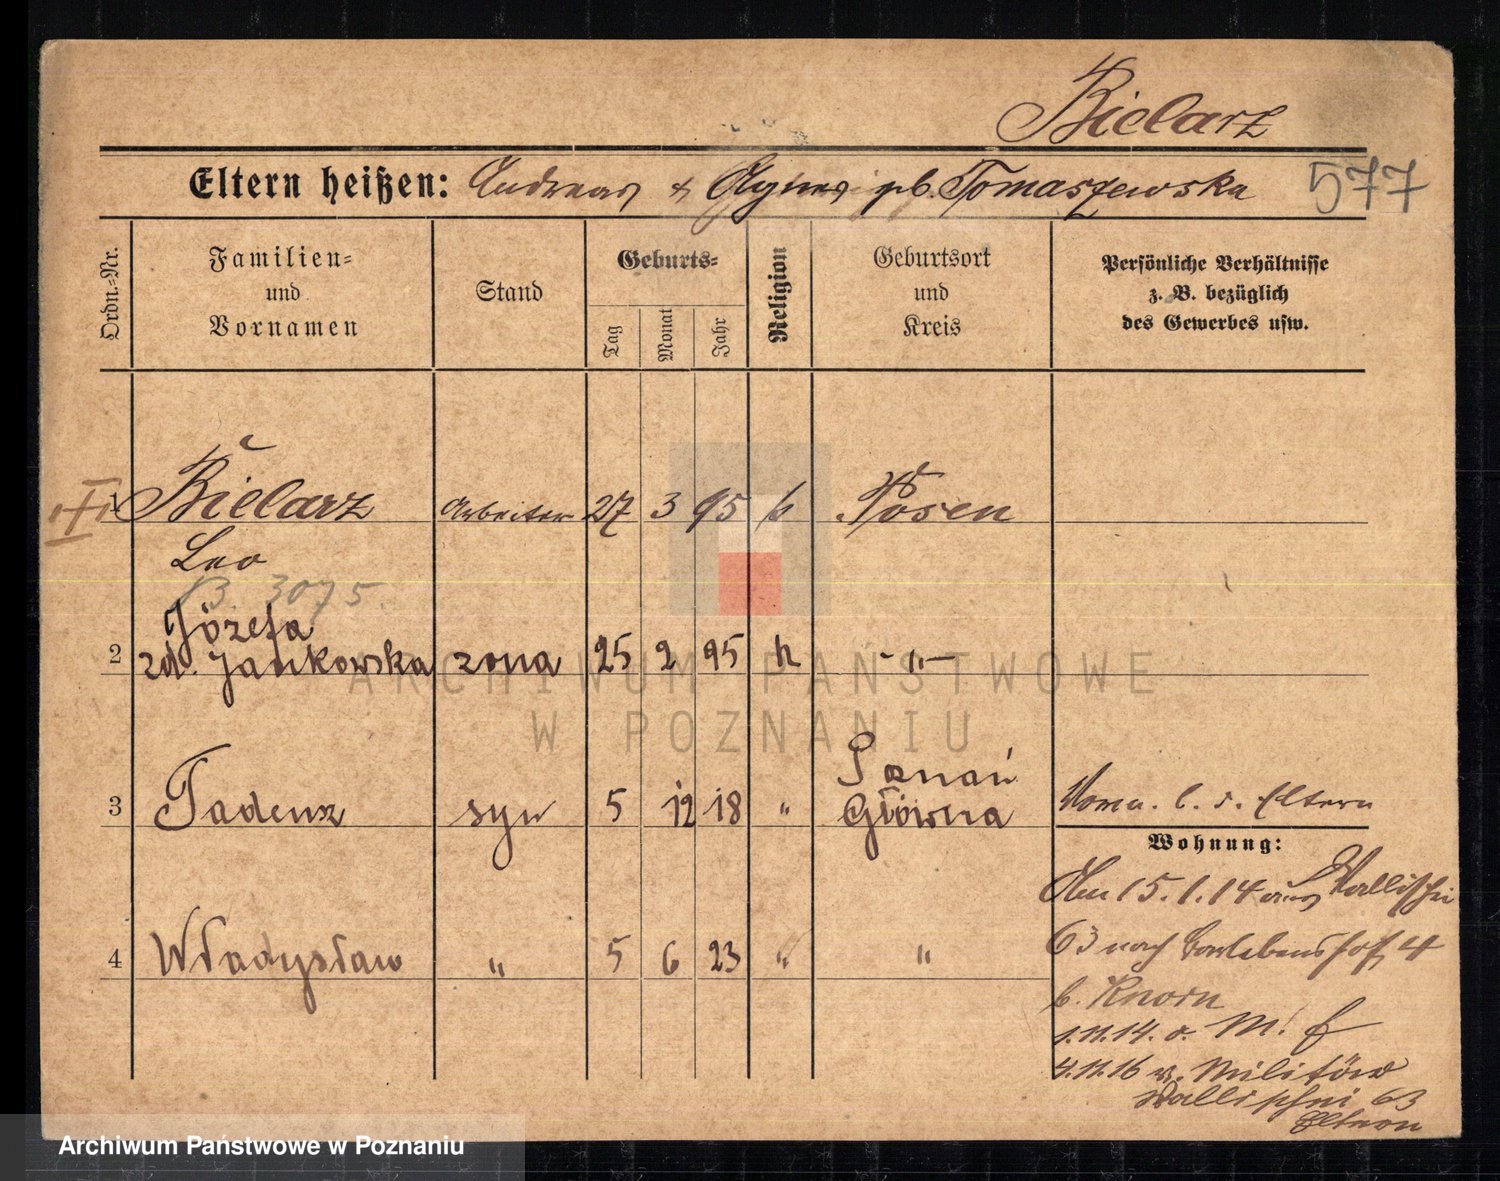 Bielarz
577
Eltern heißen: Andreas & Agnes gb. Tomaszewska
Ordn.-Nr.
Familien- und Vornamen
Stand
Geburts-
Tag
Monat
Jahr
Religion
Geburtsort und Kreis
Persönliche Verhältnisse z. B. bezüglich des Gewerbes usw.
1 Bielarz Arbeiter 27 3 95 k Posen
Leo
B. 3075
Józefa
2 zd. Jankowska żona 25 2 95 k -"-
Poznań
3 Tadeusz syn 5 12 18 " Główna
Eltern
Wohnung:
Am 15.1.14 aus Wallischei
63 nach 4
4 Władysław " 5 6 23 " "
b. Knorn
1.11.14. a. M. f
4.11.16 v. Militär
Wallischei 63
Eltern
ARCHIWUM PAŃSTWOWE
W POZNANIU
Archiwum Państwowe w Poznaniu